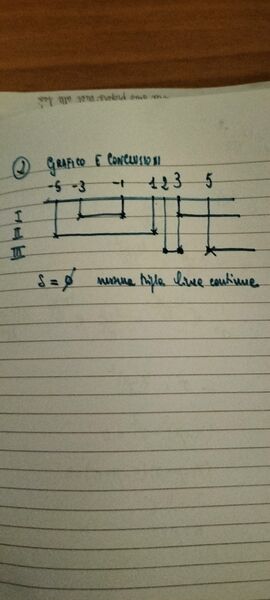 ② GRAFICO E CONCLUSIONI
-5 -3 -1 1 2 3 5
I
II
III
S = ∅ nessuna tripla linea continua